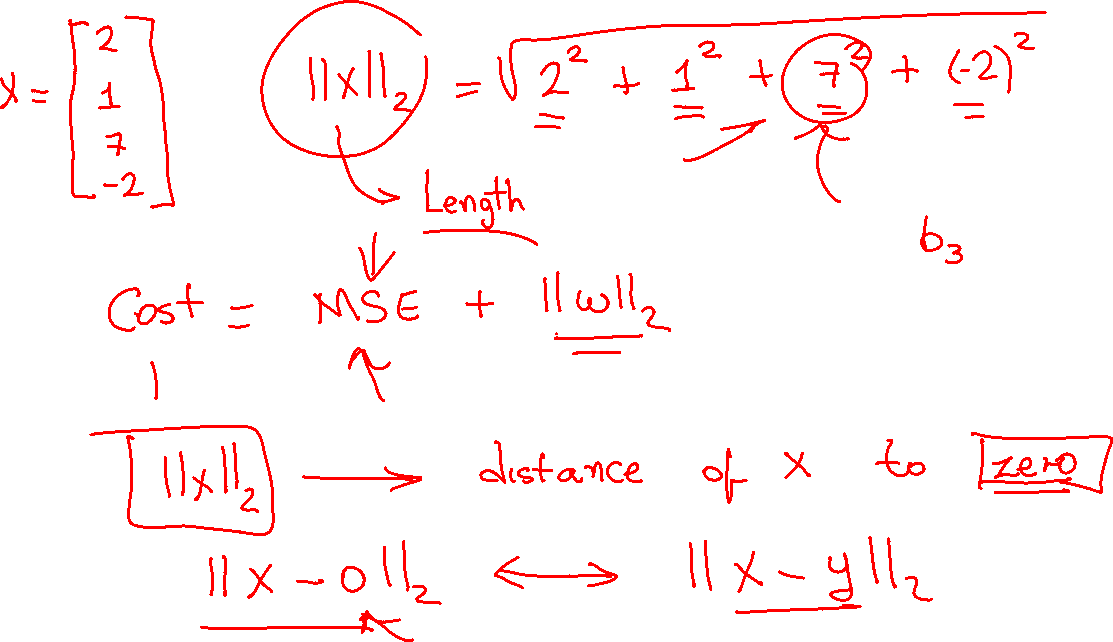 x = [2 1 7 -2] ||x||₂ = √2² + 1² + 7² + (-2)²
Length
b₃
Cost = MSE + ||w||₂
||x||₂ → distance of x to zero
||x - 0||₂ ↔ ||x - y||₂